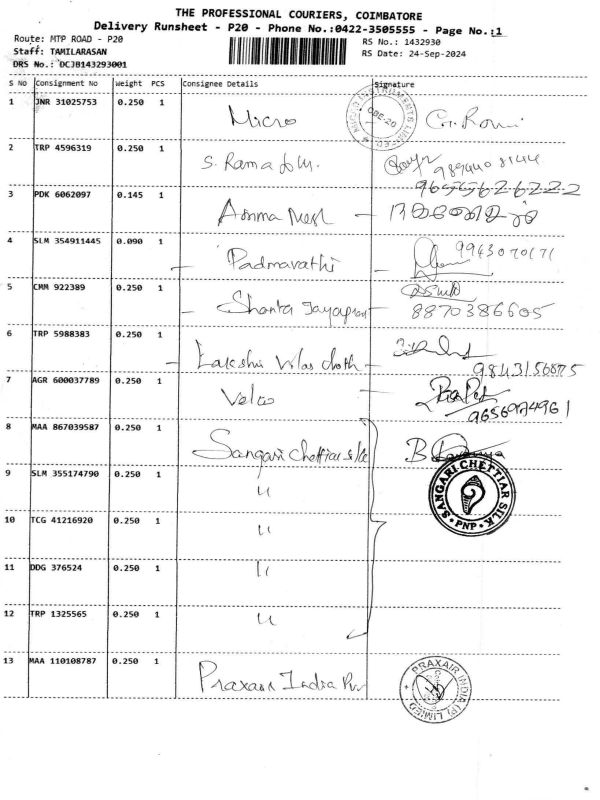 THE PROFESSIONAL COURIERS, COIMBATORE
Delivery Runsheet - P20 - Phone No.:0422-3505555 - Page No.:1
Route: MTP ROAD - P20
Staff: TAMILARASAN
DRS No.: DCJB143293001
RS No.: 1432930
RS Date: 24-Sep-2024
S No Consignment No Weight PCS Consignee Details Signature
1 JNR 31025753 0.250 1 Micro
2 TRP 4596319 0.250 1 S. Rama 9894408144
3 PDK 6062097 0.145 1 Amma 9655626222
4 SLM 354911445 0.090 1 Padmavathi 9943070171
5 CMM 922389 0.250 1 Shanta 8870386605
6 TRP 5988383 0.250 1 Lakshmi Vilas cloth 9843156875
7 AGR 600037789 0.250 1 Velco 9656974961
8 MAA 867039587 0.250 1 Sangari Chettiar silk
SANGARI CHETTIAR SILK PNP
9 SLM 355174790 0.250 1 "
10 TCG 41216920 0.250 1 "
11 DDG 376524 0.250 1 "
12 TRP 1325565 0.250 1 "
13 MAA 110108787 0.250 1 Praxair India Pvt
PRAXAIR INDIA (P) LIMITED